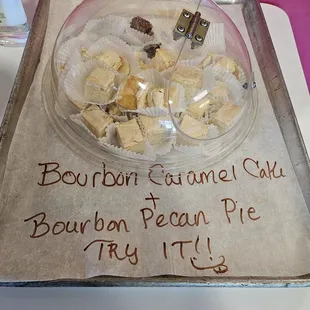 Bourbon Caramel Cake
+
Bourbon Pecan Pie
TRY IT!!